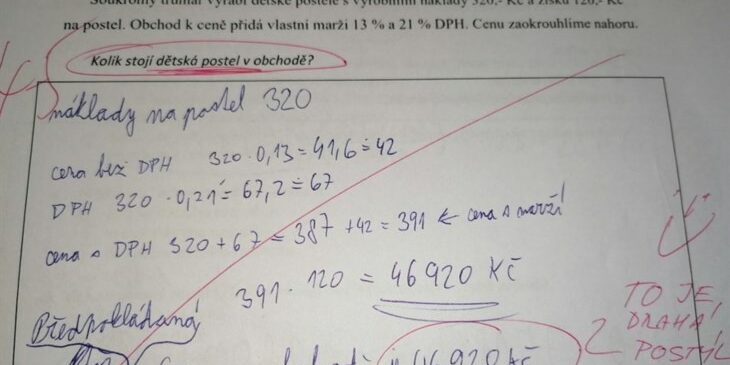 Soukromý truhlář vyrábí dětské postele s výrobními náklady 320,- Kč a zisku 120,- Kč
na postel. Obchod k ceně přidá vlastní marži 13 % a 21 % DPH. Cenu zaokrouhlíme nahoru.
Kolik stojí dětská postel v obchodě?
náklady na postel 320
cena bez DPH 320 · 0,13 = 41,6 ≐ 42
DPH 320 · 0,21 = 67,2 ≐ 67
cena s DPH 320 + 67 = 387 + 42 = 391 ← cena s marží
391 · 120 = 46 920 Kč
Předpokládaná
46 920 Kč
TO JE
DRAHÁ
POSTÝL